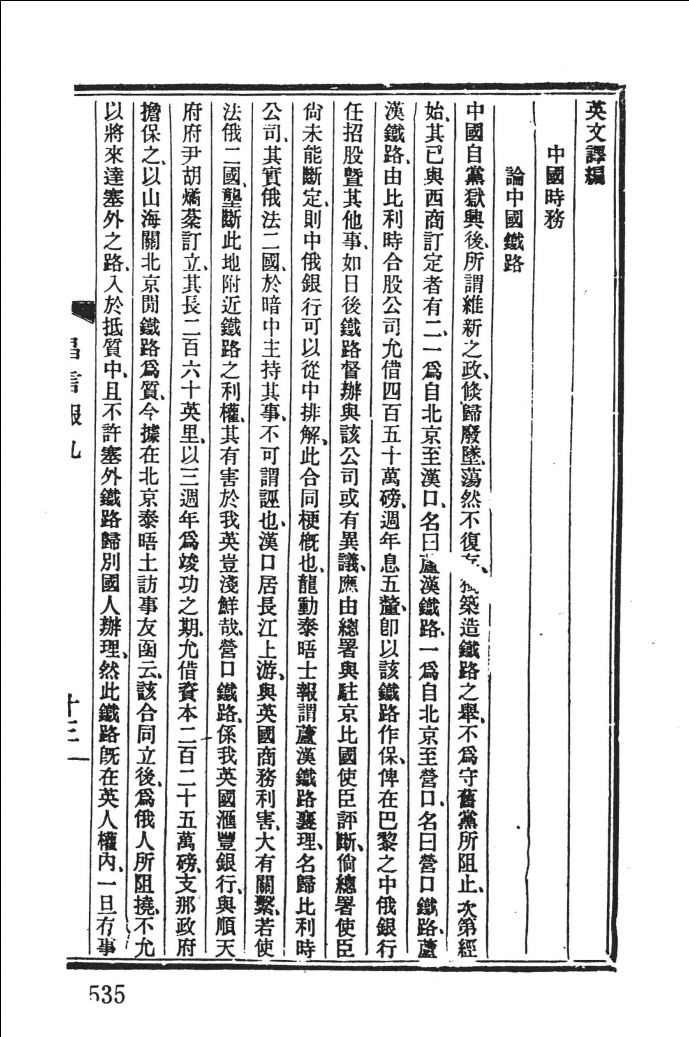 英文譯編
中國時務
論中國鐵路
中國自黨獄興後、所謂維新之政、倏歸廢墜、蕩然不復存、築造鐵路之舉、不爲守舊黨所阻止、次第經
始、其已與西商訂定者有二、一爲自北京至漢口、名曰蘆漢鐵路、一爲自北京至營口、名曰營口鐵路、蘆
漢鐵路、由比利時合股公司允借四百五十萬磅、週年息五釐、卽以該鐵路作保、俾在巴黎之中俄銀行
任招股曁其他事、如日後鐵路督辦與該公司或有異議、應由總署與駐京比國使臣評斷、倘總署使臣
尙未能斷定、則中俄銀行可以從中排解、此合同梗槪也、龍動泰晤士報謂蘆漢鐵路襄理、名歸比利時
公司、其實俄法二國、於暗中主持其事、不可謂誣也、漢口居長江上游、與英國商務利害、大有關繫、若使
法俄二國、壟斷此地附近鐵路之利權、其有害於我英豈淺鮮哉、營口鐵路、係我英國滙豐銀行、與順天
府府尹胡燏棻訂立、其長二百六十英里、以三週年爲竣功之期、允借資本二百二十五萬磅、支那政府
擔保之、以山海關北京閒鐵路爲質、今據在北京泰晤士訪事友函云、該合同立後、爲俄人所阻撓、不允
以將來達塞外之路、入於抵質中、且不許塞外鐵路歸別國人辦理、然此鐵路旣在英人權內、一旦有事
昌言報九
十三
535